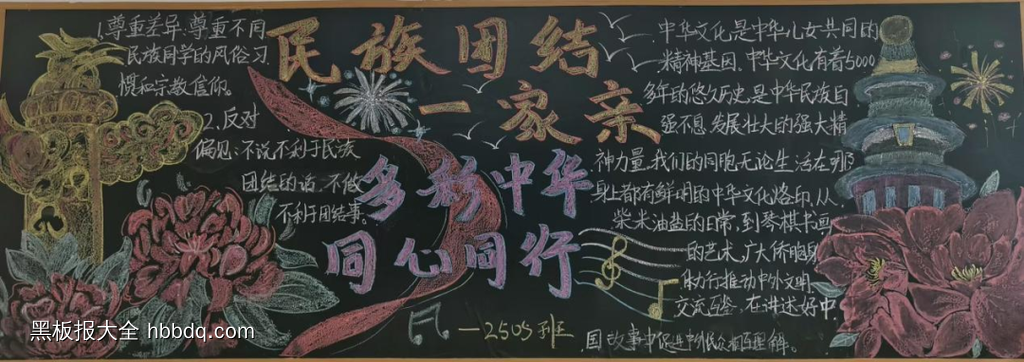 1.尊重差异:尊重不同
民族同学的风俗习
惯和宗教信仰。
2、反对
偏见:不说不利于民族
团结的话,不做
不利团结事。
民族团结
一家亲
多彩中华
同心同行
一2505班
中华文化,是中华儿女共同的
精神基因,中华文化有着5000
多年的悠久历史,是中华民族自
强不息、发展壮大的强大精
神力量,我们的同胞无论生活在哪
身上都有鲜明的中华文化烙印,从
柴米油盐的日常,到琴棋书画
的艺术,广大侨胞身
体力行推动中外文明
交流互鉴,在讲述好中
国故事中促进中外民众相互理解。
黑板报大全 hbbdq.com